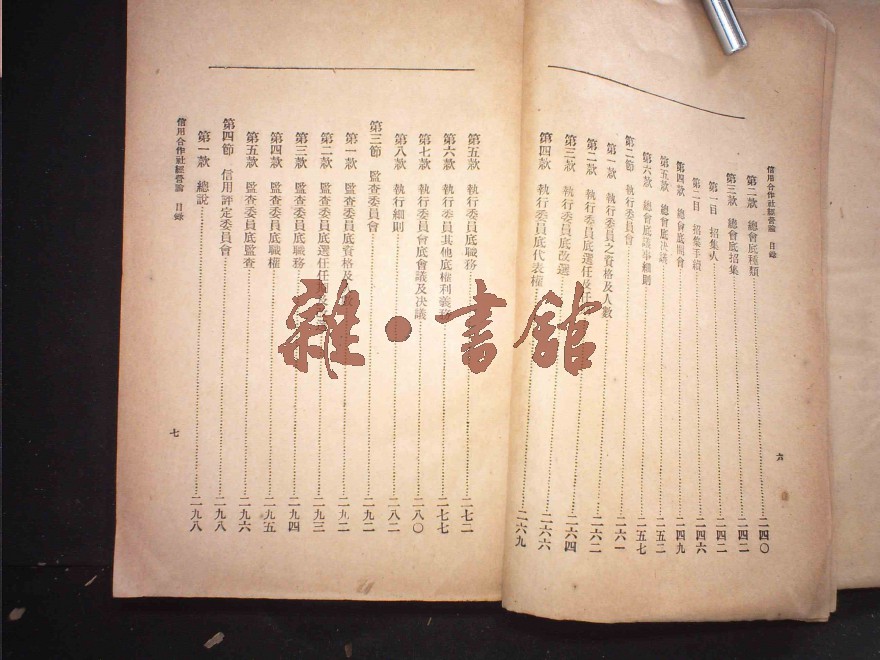 信用合作社經營論 目錄
第二款 總會底種類……二四〇
第三款 總會底招集……二四二
第一目 招集人……二四二
第二目 招集手續……二四六
第四款 總會底開會……二四九
第五款 總會底決議……二五二
第六款 總會底議事細則……二五七
第二節 執行委員會……二六一
第一款 執行委員之資格及人數……二六二
第二款 執行委員底選任及……二六四
第三款 執行委員底改選……二六六
第四款 執行委員底代表權……二六九
六
第五款 執行委員底職務……二七二
第六款 執行委員其他底權利義務……二七七
第七款 執行委員會底會議及決議……二八〇
第八款 執行細則……二八二
第三節 監查委員會……二九二
第一款 監查委員底資格及……二九二
第二款 監查委員底選任任……二九三
第三款 監查委員底職務……二九四
第四款 監查委員底職權……二九五
第五款 監查委員底監查……二九六
第四節 信用評定委員會……二九八
第一款 總說……二九八
信用合作社經營論 目錄
七
雜·書館